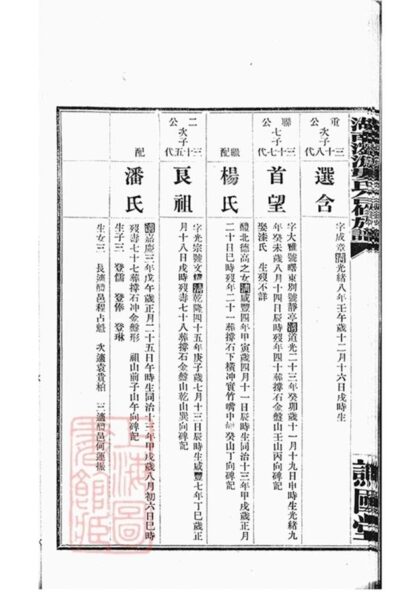 重公次子三十八代
選含
字成章清光緒八年壬午歲十二月十六日戌時生
聯公七子三十七代
首望
字大雅號曙東別號靜亭清道光二十三年癸卯歲十一月十九日申時生光緒九
年癸未歲八月十四日辰時歿年四十葬撐石金盤山壬山丙向碑記
娶漆氏 生歿不詳
繼配
楊氏
北德高之女清咸豐四年甲寅歲四月十一日辰時生同治十三年甲戌歲正月
二十日巳時歿年二十一葬撐石下橫沖實竹嘴中癸山丁向碑記
二公次子三十五代
艮祖
字光宗號文清乾隆四十五年庚子歲七月十三日辰時生咸豐七年丁巳歲正
月十八日戌時歿壽七十八葬撐石金盤山乾山巽向碑記
配
潘氏
清嘉慶三年戊午歲正月二十五日午時生同治十三年甲戌歲八月初六日巳時
歿壽七十七葬撐石沖金盤形 祖山前子山午向碑記
生子三 登儒 登俸 登琳
生女三 長適醴邑程占魁 次適袁貴柏 三適醴邑何蓮振